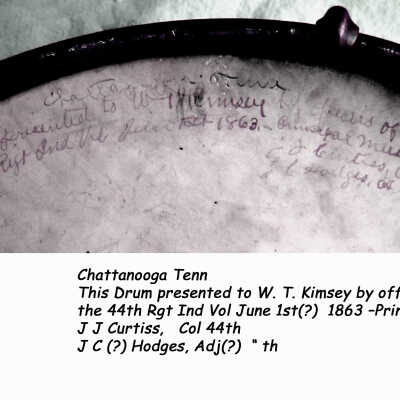 Chattanooga Tenn
presented to W T Kimsey by
Rgt Ind Vol June 1st 1863 - Principal
J J Curtiss,
Hodges,
Chattanooga Tenn
This Drum presented to W. T. Kimsey by off
the 44th Rgt Ind Vol June 1st(?) 1863 –Prin
J J Curtiss, Col 44th
J C (?) Hodges, Adj(?) " th